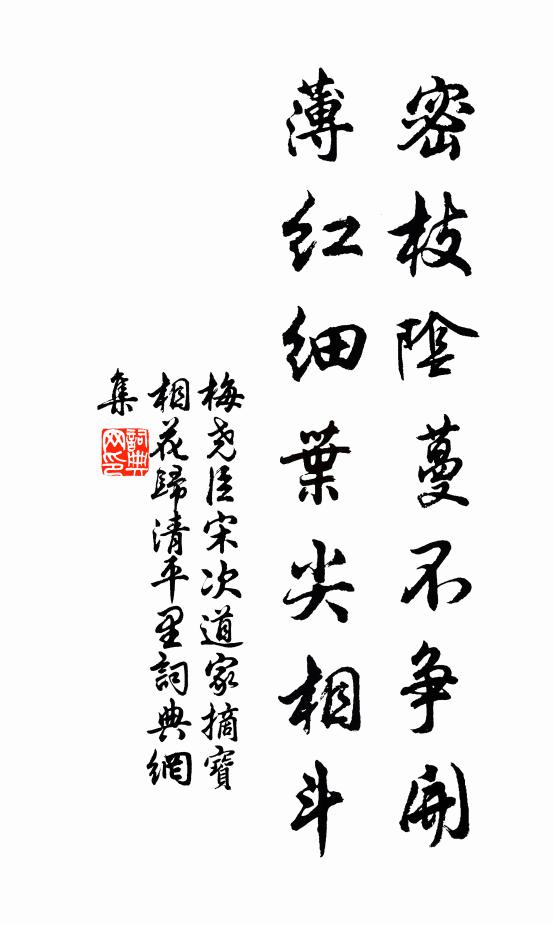 密枝陰蔓不争開
薄红细葉尖相斗
梅尧臣宋次道家摘寶
相花歸清平里詞典網
集
詞典网印